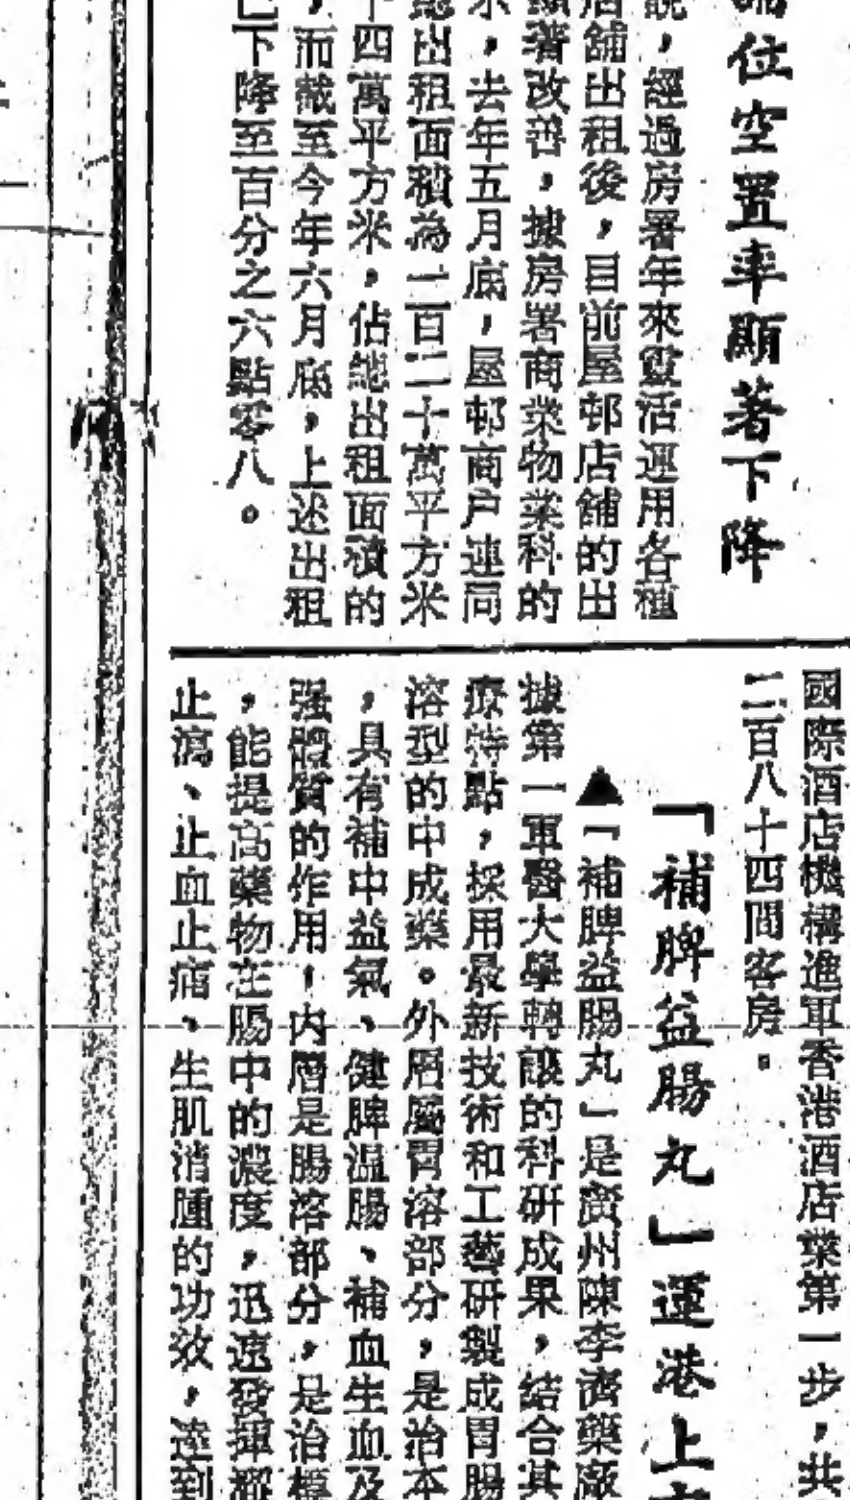 位空置率顯著下降
，經過房署年來靈活運用各種
店舖出租後，目前屋邨店舖的出
顯著改善，據房署商業物業科的
，去年五月底，屋邨商戶連同
總出租面積為一百二十萬平方米
十四萬平方米，佔總出租面積的
，而截至今年六月底，上述出租
已下降至百分之六點零八。
國際酒店機構進軍香港酒店業第一步，共
二百八十四間客房。
「補脾益腸丸」運港上市
▲「補脾益腸丸」是廣州陳李濟藥廠
據第一軍醫大學轉讓的科研成果，結合其
療特點，採用最新技術和工藝研製成胃腸
溶型的中成藥。外層屬胃溶部分，是治本
，具有補中益氣、健脾溫腸、補血生血及
强體質的作用，内層是腸溶部分，是治標
，能提高藥物在腸中的濃度，迅速發揮
止瀉、止血止痛、生肌消腫的功效，達到